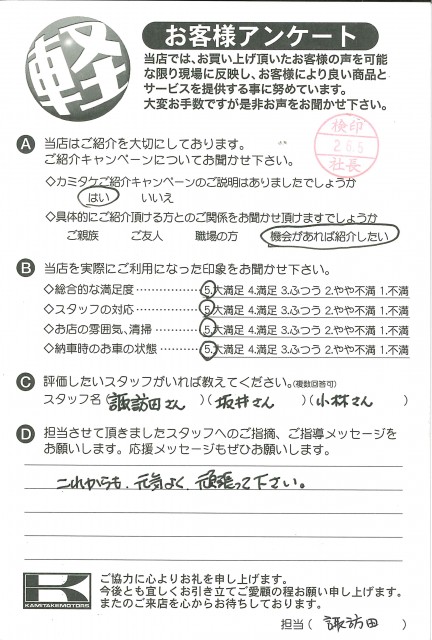 軽
お客様アンケート
当店では、お買い上げ頂いたお客様の声を可能
な限り現場に反映し、お客様により良い商品と
サービスを提供する事に努めています。
大変お手数ですが是非お声をお聞かせ下さい。
検印
2.6.5
社長
A 当店はご紹介を大切にしております。
ご紹介キャンペーンについてお聞かせ下さい。
◇カミタケご紹介キャンペーンのご説明はありましたでしょうか
はい いいえ
◇具体的にご紹介頂ける方とのご関係をお聞かせ頂けますでしょうか
ご親族 ご友人 職場の方 機会があれば紹介したい
B 当店を実際にご利用になった印象をお聞かせ下さい。
◇総合的な満足度 5.大満足 4.満足 3.ふつう 2.やや不満 1.不満
◇スタッフの対応 5.大満足 4.満足 3.ふつう 2.やや不満 1.不満
◇お店の雰囲気、清掃 5.大満足 4.満足 3.ふつう 2.やや不満 1.不満
◇納車時のお車の状態 5.大満足 4.満足 3.ふつう 2.やや不満 1.不満
C 評価したいスタッフがいれば教えてください。(複数回答可)
スタッフ名(諏訪田さん)(坂井さん)(小林さん)
D 担当させて頂きましたスタッフへのご指摘、ご指導メッセージを
お願いします。応援メッセージもぜひお願いします。
これからも、元気よく、頑張って下さい。
K
KAMITAKEMOTORS
ご協力に心よりお礼を申し上げます。
今後とも宜しくお引き立てご愛顧の程お願い申し上げます。
またのご来店を心からお待ちしております。
担当(諏訪田)